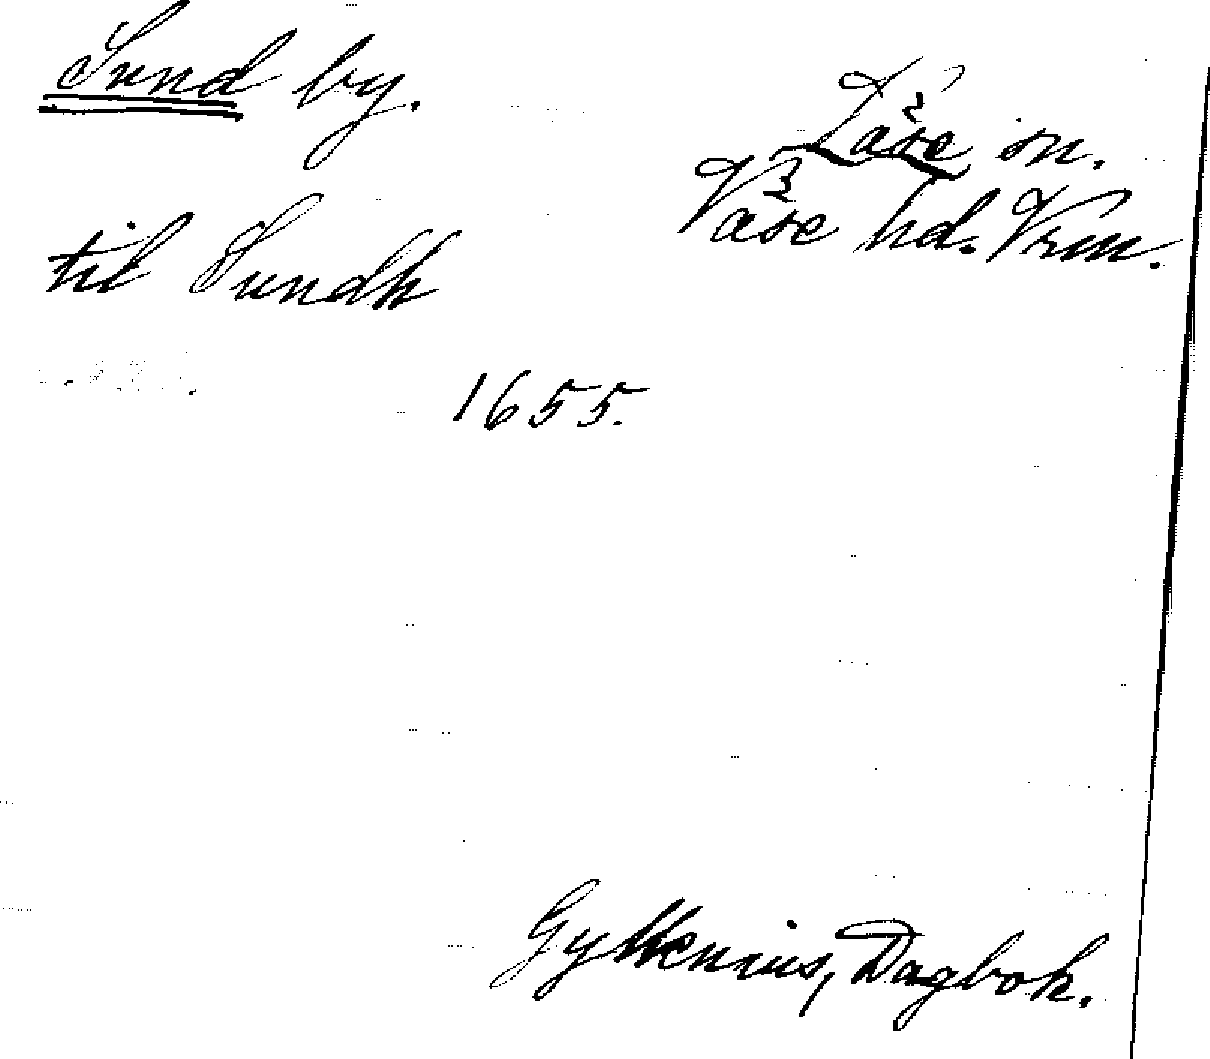 Sund by.
Väse sn.
Väse hd. Vrm.
til Sundh
1655.
Gyllenius, Dagbok.